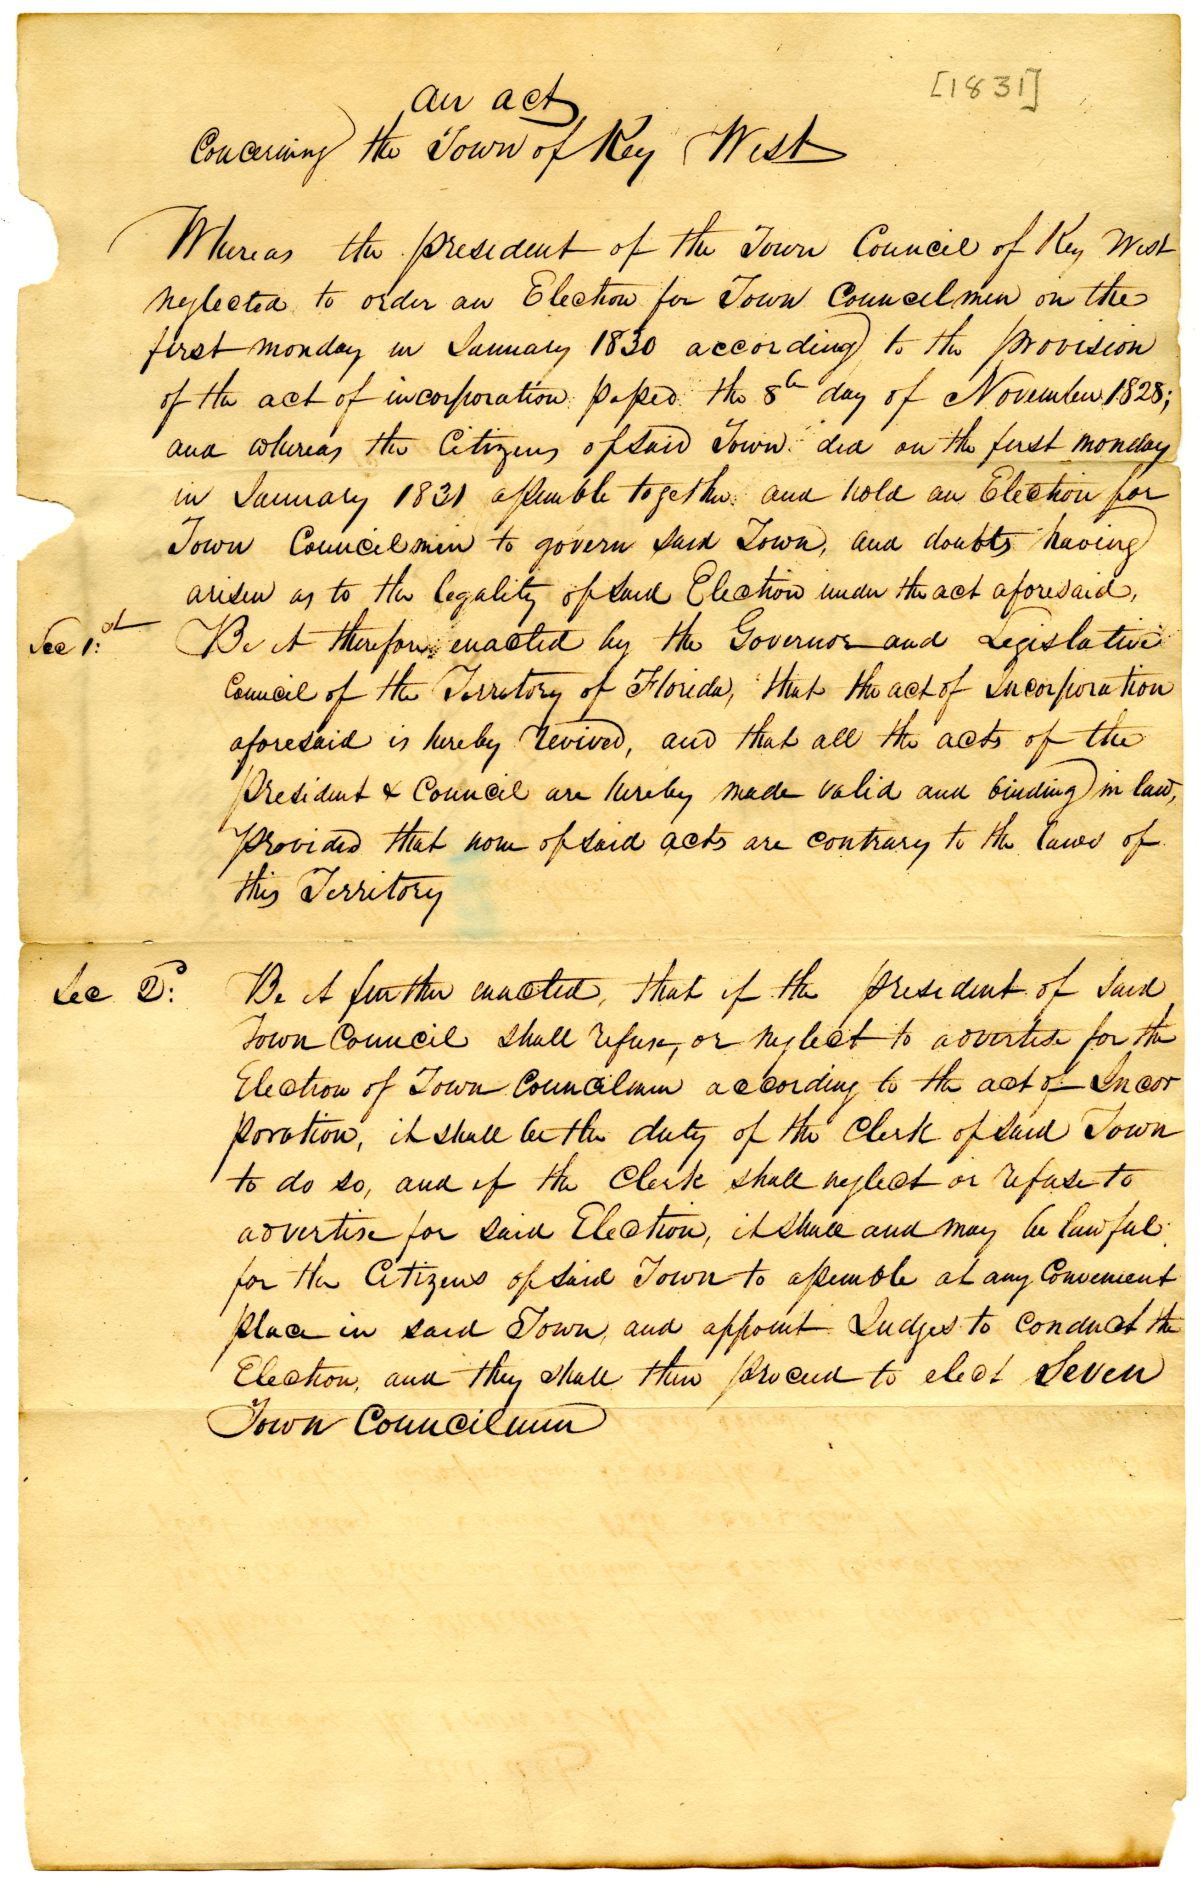 [1831]
An act
Concerning the Town of Key West
Whereas the president of the Town Council of Key West
neglected to order an Election for Town Councilmen on the
first monday in January 1830 according to the provision
of the act of incorporation passed the 8th day of November 1828;
and whereas the Citizens of said Town did on the first monday
in January 1831 assemble together and hold an Election for
Town Councilmen to govern said Town, and doubts having
arisen as to the legality of said Election under the act aforesaid,
Sec 1st: Be it therefore enacted by the Governor and Legislative
Council of the Territory of Florida, that the act of Incorporation
aforesaid is hereby revived, and that all the acts of the
President & Council are hereby made valid and binding in law,
provided that none of said acts are contrary to the laws of
this Territory
Sec 2d: Be it further enacted, that if the president of said
Town Council shall refuse, or neglect to advertise for the
Election of Town Councilmen according to the act of Incor
poration, it shall be the duty of the Clerk of said Town
to do so, and if the Clerk shall neglect or refuse to
advertise for said Election, it shall and may be lawful
for the Citizens of said Town to assemble at any Convenient
place in said Town, and appoint Judges to conduct the
Election, and they shall then proceed to elect Seven
Town Councilmen